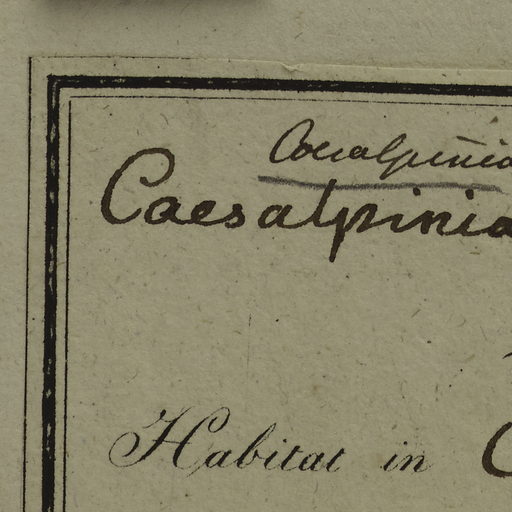 Coesalpinia
Caesalpinia
Habitat in